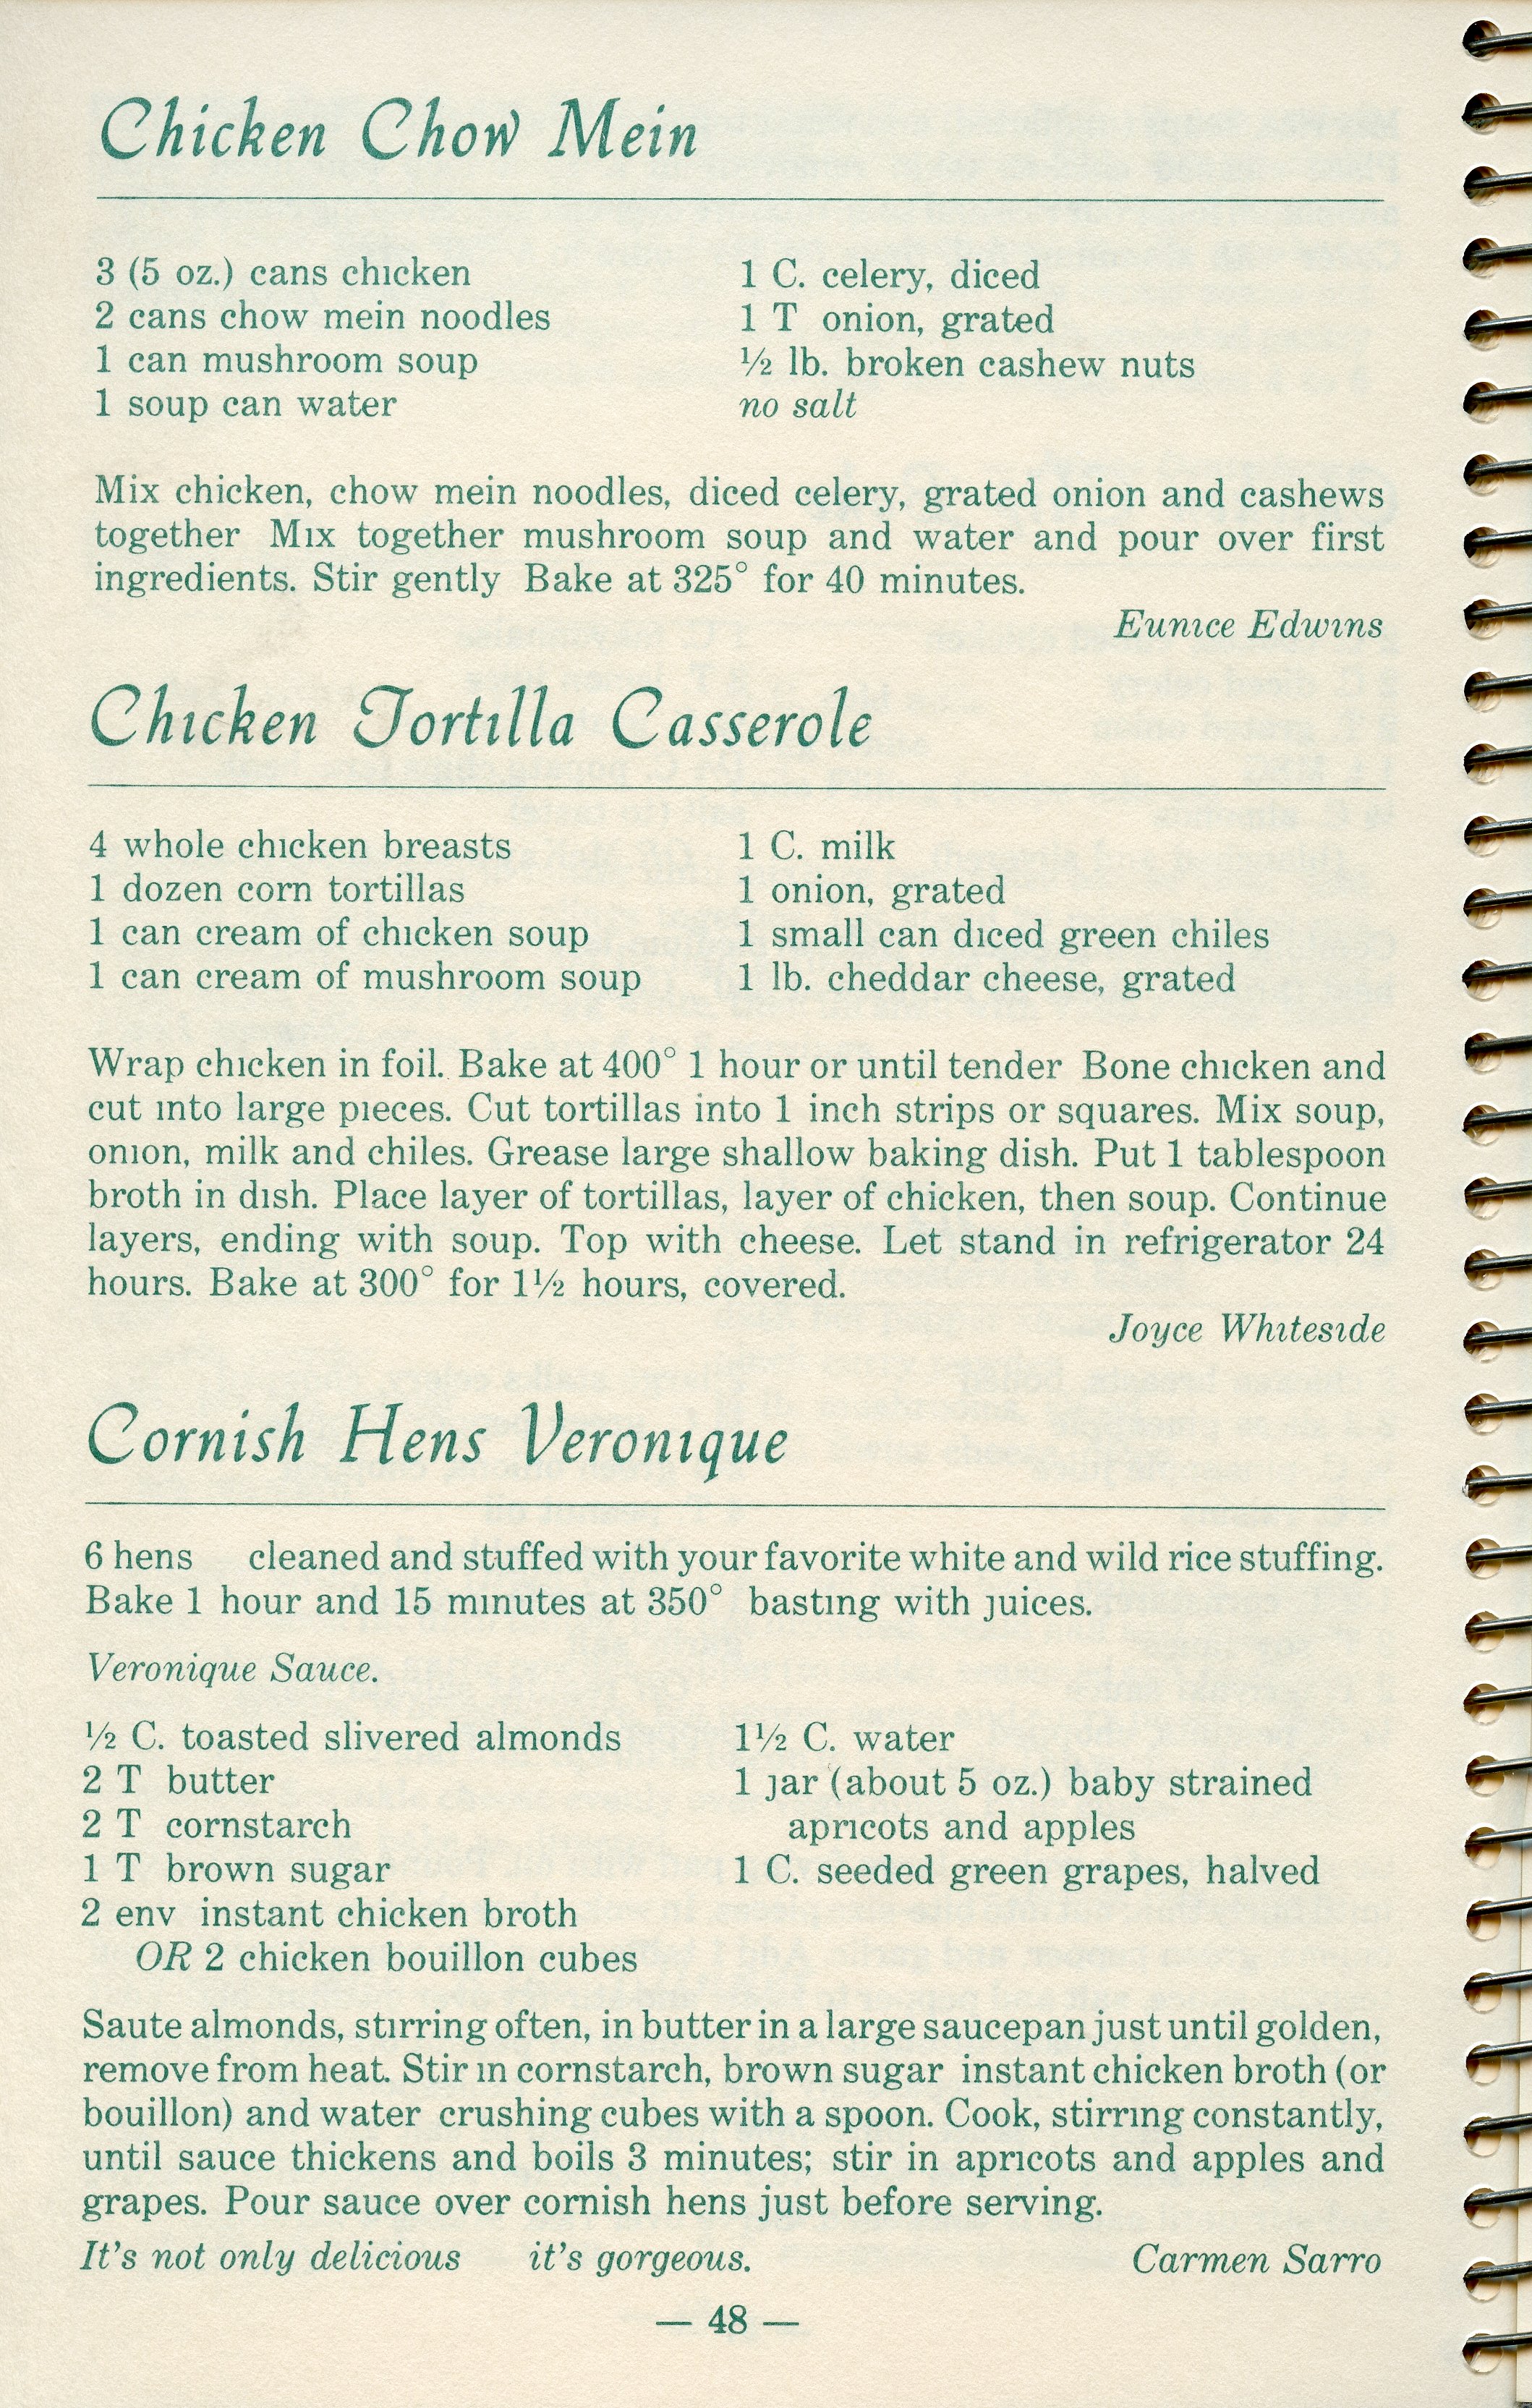 Chicken Chow Mein
3 (5 oz.) cans chicken
2 cans chow mein noodles
1 can mushroom soup
1 soup can water
1 C. celery, diced
1 T onion, grated
½ lb. broken cashew nuts
no salt
Mix chicken, chow mein noodles, diced celery, grated onion and cashews
together Mix together mushroom soup and water and pour over first
ingredients. Stir gently Bake at 325° for 40 minutes.
Eunice Edwins
Chicken Tortilla Casserole
4 whole chicken breasts
1 dozen corn tortillas
1 can cream of chicken soup
1 can cream of mushroom soup
1 C. milk
1 onion, grated
1 small can diced green chiles
1 lb. cheddar cheese, grated
Wrap chicken in foil. Bake at 400° 1 hour or until tender Bone chicken and
cut into large pieces. Cut tortillas into 1 inch strips or squares. Mix soup,
onion, milk and chiles. Grease large shallow baking dish. Put 1 tablespoon
broth in dish. Place layer of tortillas, layer of chicken, then soup. Continue
layers, ending with soup. Top with cheese. Let stand in refrigerator 24
hours. Bake at 300° for 1½ hours, covered.
Joyce Whiteside
Cornish Hens Veronique
6 hens cleaned and stuffed with your favorite white and wild rice stuffing.
Bake 1 hour and 15 minutes at 350° basting with juices.
Veronique Sauce.
½ C. toasted slivered almonds
2 T butter
2 T cornstarch
1 T brown sugar
2 env instant chicken broth
OR 2 chicken bouillon cubes
1½ C. water
1 jar (about 5 oz.) baby strained
apricots and apples
1 C. seeded green grapes, halved
Saute almonds, stirring often, in butter in a large saucepan just until golden,
remove from heat. Stir in cornstarch, brown sugar instant chicken broth (or
bouillon) and water crushing cubes with a spoon. Cook, stirring constantly,
until sauce thickens and boils 3 minutes; stir in apricots and apples and
grapes. Pour sauce over cornish hens just before serving.
It's not only delicious it's gorgeous. Carmen Sarro
— 48 —